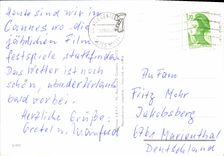 Heute sind wir in
Cannes wo die
jährlichen Film
festspiele stattfinden.
Das Wetter ist noch
schön, der Urlaub
bald vorbei.
Herzliche Grüße:
Gretel u. Manfred
An Fam.
Fritz Mohr
Jakobsberg
6761 Marienthal
Deutschland